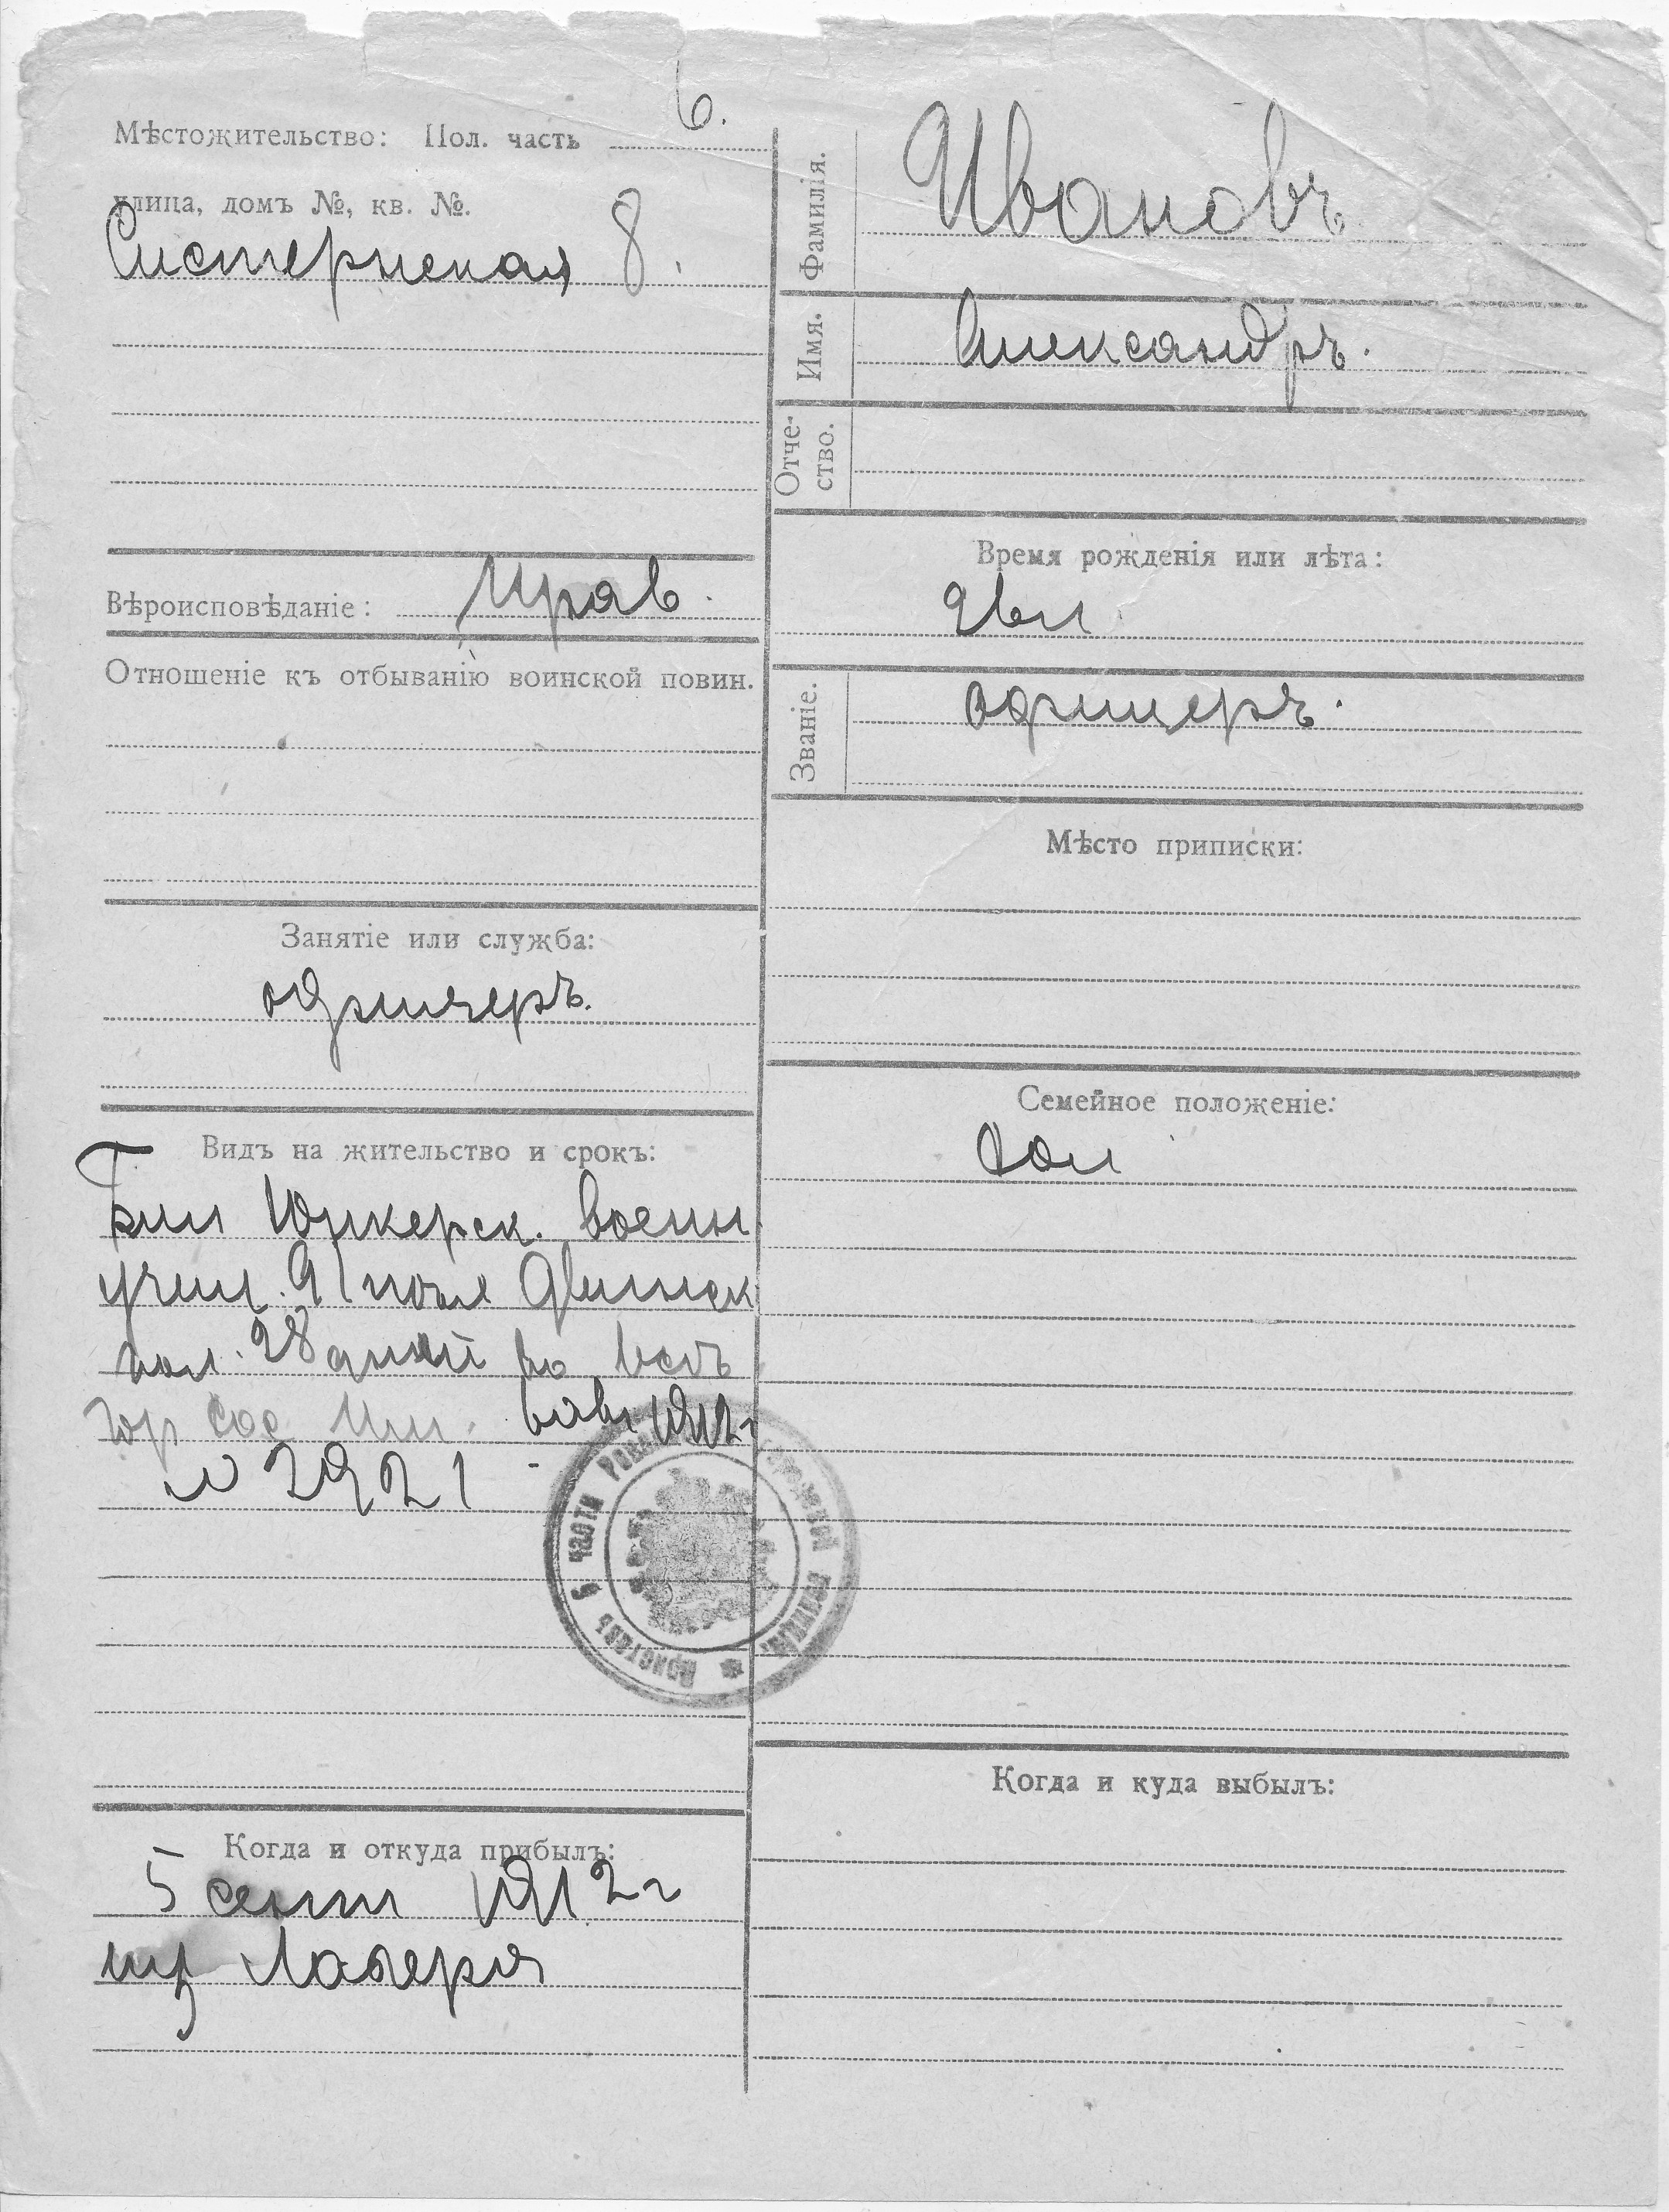 Мѣстожительство: Пол. часть 6.
улица, домъ №, кв. №.
Систернская 8.
Вѣроисповѣданіе: Прав.
Отношеніе къ отбыванію воинской повин.
Занятіе или служба:
офицеръ.
Видъ на жительство и срокъ:
Бил Юнкерск. воени
учил. 91 Двинск
пол. 28 дней во всѣ
гор 1912г
№ 2921
Приставъ 6 части Рев. Городской полиціи
Когда и откуда прибылъ:
5 сент 1912г
из Лагеря
Фамилія. Ивановъ
Имя. Александръ.
Отче-
ство.
Время рожденія или лѣта:
Званіе. офицеръ.
Мѣсто приписки:
Семейное положеніе:
хол
Когда и куда выбылъ: